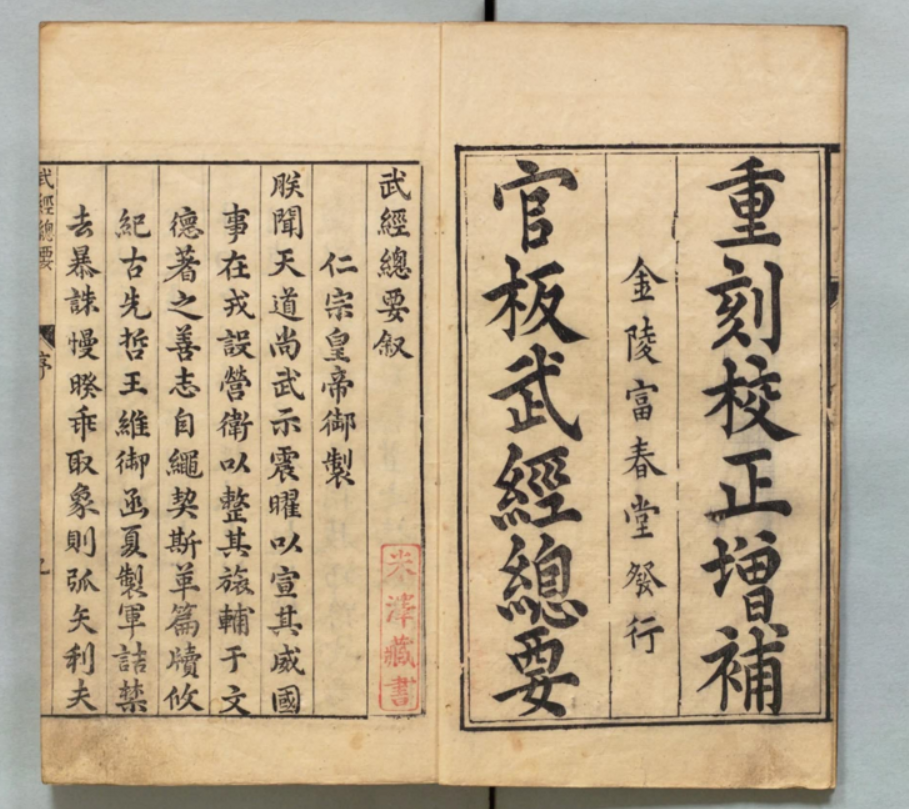 重刻校正增補
金陵富春堂發行
官板武經總要
武經總要叙
米澤藏書
仁宗皇帝御製
朕聞天道尚武示震曜以宣其威國
事在戎設營衛以整其旅輔于文
德著之善志自繩契斯革篇牘攸
紀古先哲王維御函夏製軍詰禁
去暴誅慢暌乖取象則弧矢利夫
武經總要
序